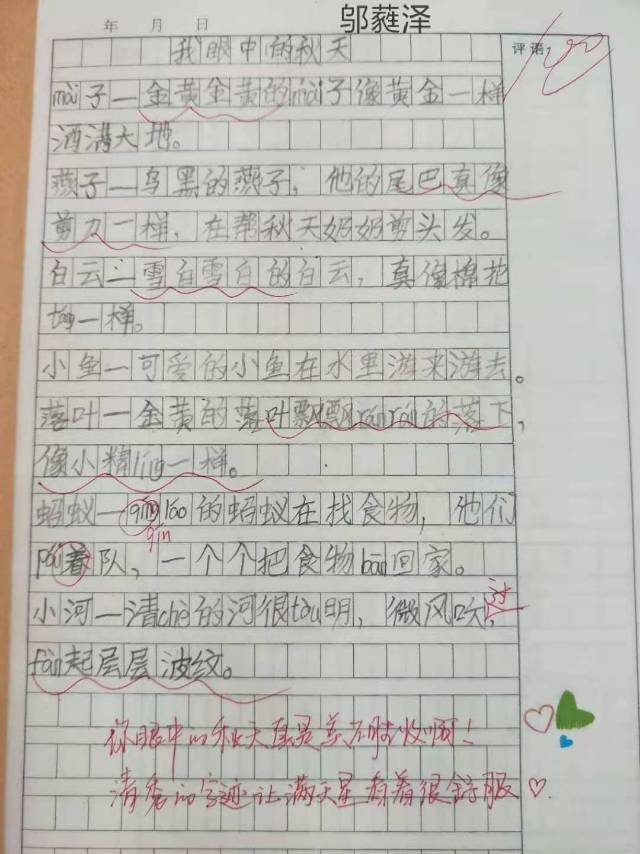 邬蕤泽
年 月 日
评语
100
我眼中的秋天
mài子—金黄金黄的mài子像黄金一样
洒满大地。
燕子—乌黑的燕子，他的尾巴真像
剪刀一样，在帮秋天奶奶剪头发。
白云—雪白雪白的白云，真像棉花
táng一样。
小鱼—可爱的小鱼在水里游来游去。
落叶—金黄的落叶飘飘rán rán的落下，
像小精líng一样。
蚂蚁—qíng láo的蚂蚁在找食物，他们
qín
pái着队，一个个把食物bān回家。
小河—清chè的河很tòu明，微风吹过，
fàn起层层波纹。
你眼中的秋天真是美不胜收啊！
清秀的字迹让满天星看着很舒服